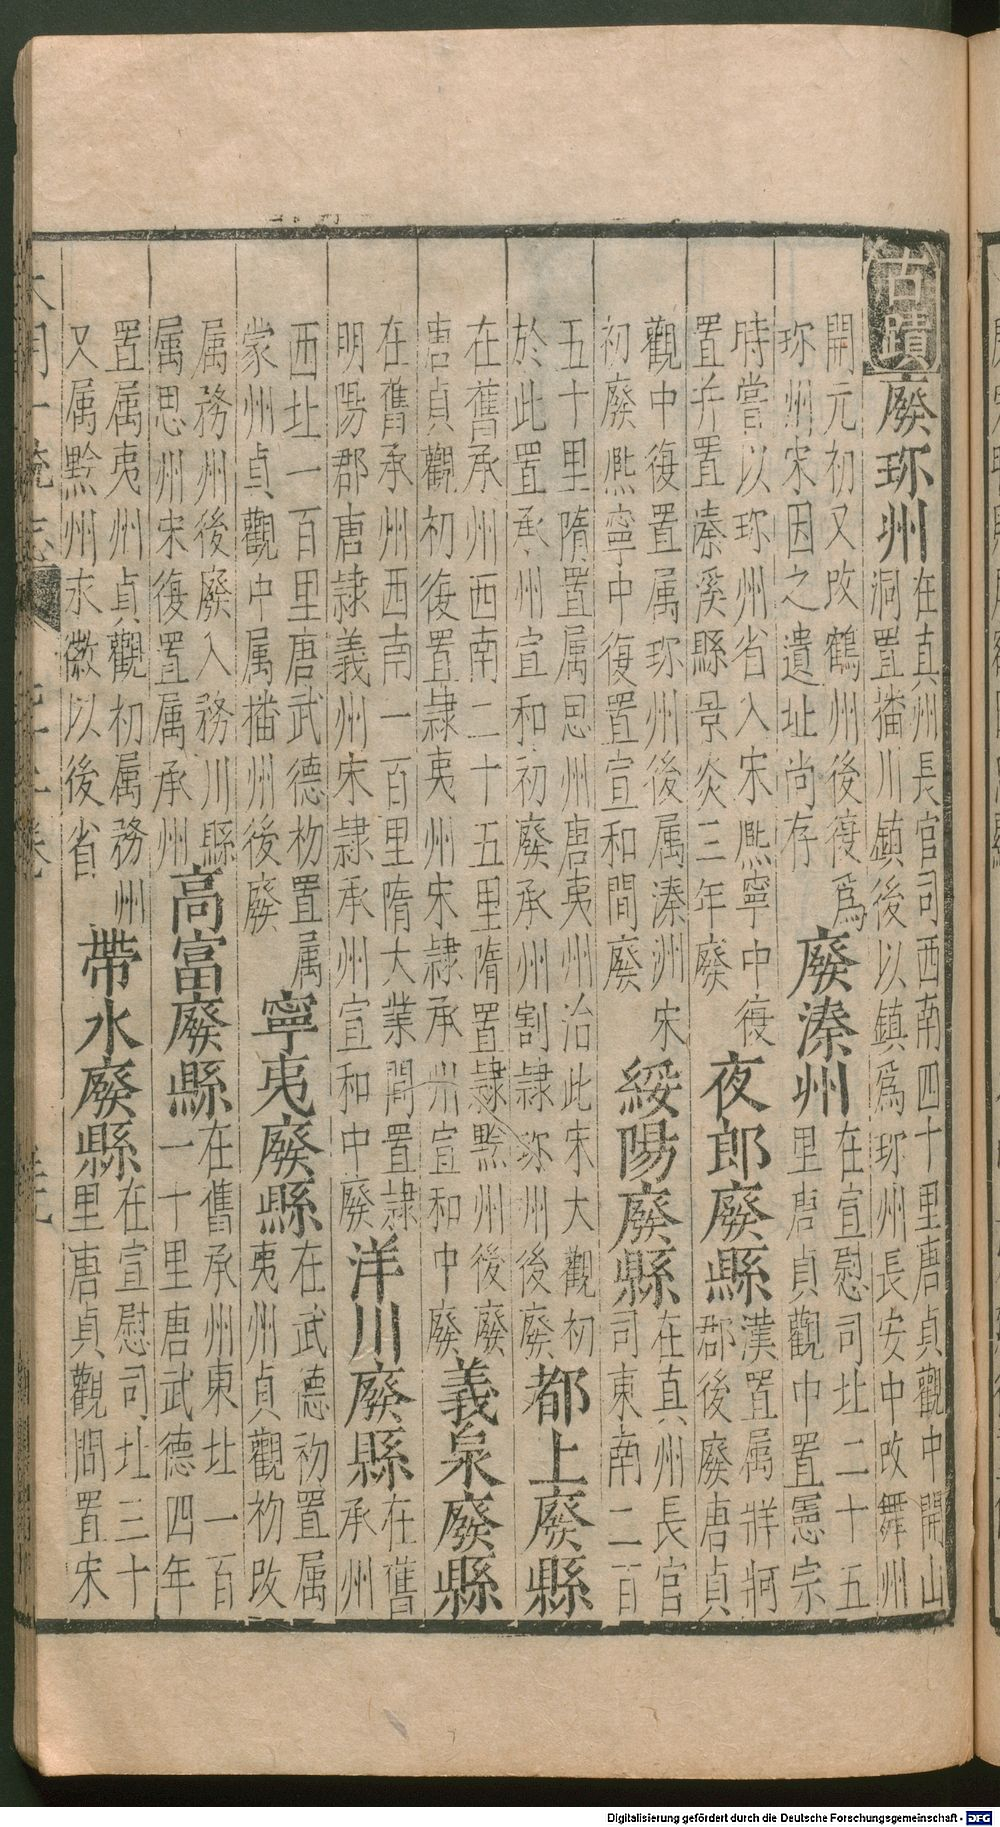 古蹟
廢珎州
在真州長官司西南四十里唐貞觀中開山
洞置播川鎮後以鎮爲珎州長安中改舞州
開元初又改鶴州後復爲
珎州宋因之遺址尚存
廢溱州
在宣慰司北二十五
里唐貞觀中置憲宗
時嘗以珎州省入宋熈寧中復
置并置溱溪縣景炎三年廢
夜郎廢縣
漢置属牂牁
郡後廢唐貞
觀中復置属珎州後属溱洲宋
初廢熈寧中復置宣和間廢
綏陽廢縣
在真州長官
司東南二百
五十里隋置属思州唐夷州治此宋大觀初
於此置承州宣和初廢承州割隷珎州後廢
都上廢縣
在舊承州西南二十五里隋置隷黔州後廢
唐貞觀初復置隷夷州宋隷承州宣和中廢
義泉廢縣
在舊承州西南一百里隋大業間置隷
明陽郡唐隷義州宋隷承州宣和中廢
洋川廢縣
在舊
承州
西北一百里唐武德初置属
蒙州貞觀中属播州後廢
寧夷廢縣
在武德初置属
夷州貞觀初改
属務州後廢入務川縣
属思州宋復置属承州
高富廢縣
在舊承州東北一百
一十里唐武德四年
置属夷州貞觀初属務州
又属黔州永徽以後省
帶水廢縣
在宣慰司北三十
里唐貞觀間置宋
Digitalisierung gefördert durch die Deutsche Forschungsgemeinschaft - DFG